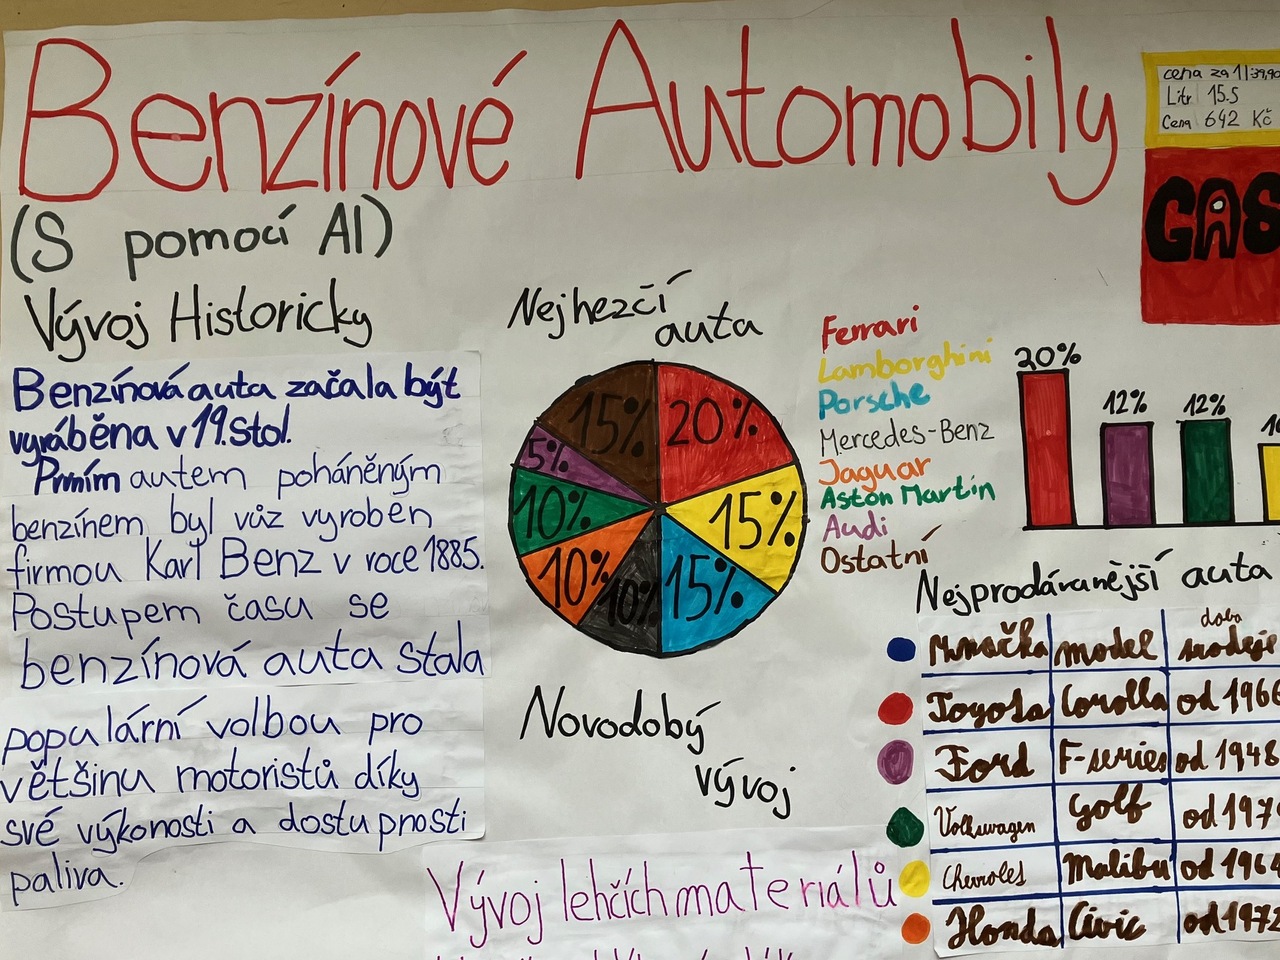 Benzínové Automobily
(S pomocí AI)
Vývoj Historicky
Benzínová auta začala být
vyráběna v 19. stol.
Prvním autem poháněným
benzínem byl vůz vyroben
firmou Karl Benz v roce 1885.
Postupem času se
benzínová auta stala
populární volbou pro
většinu motoristů díky
své výkonosti a dostupnosti
paliva.
Nejhezčí
auta
20%
15%
15%
10%
10%
10%
5%
15%
Ferrari
Lamborghini
Porsche
Mercedes-Benz
Jaguar
Aston Martin
Audi
Ostatní
Novodobý
vývoj
Vývoj lehčích materiálů
cena za 1l 39,90
Litr 15.5
Cena 642 Kč
GAS
20%
12%
12%
Nejprodávanější auta
model doba
Toyota Corolla od 1966
Ford F-series od 1948
Volkswagen Golf od 197
Chevrolet Malibu od 1964
Honda Civic od 1972